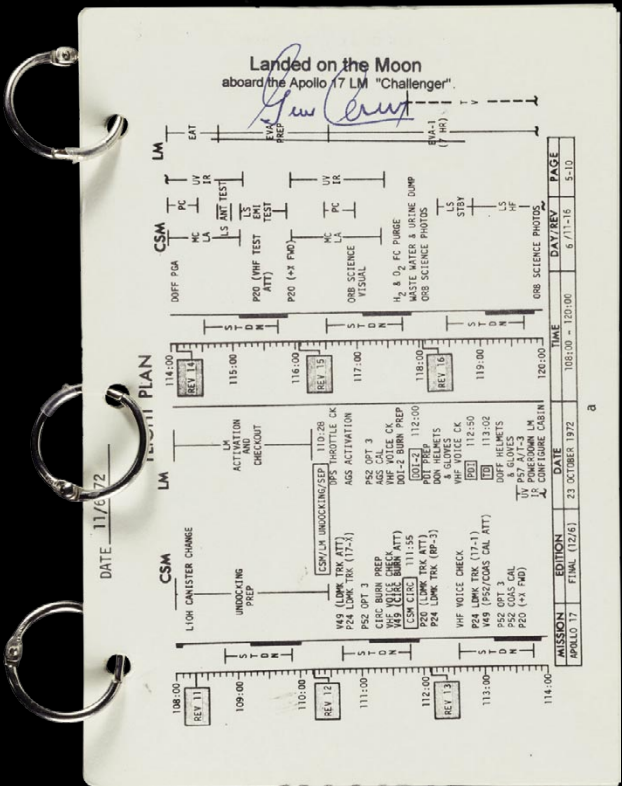 Landed on the Moon
aboard the Apollo 17 LM "Challenger".
DATE 11/6/72
FLIGHT PLAN
CSM
LM
108:00
REV 11
109:00
110:00
REV 12
111:00
112:00
REV 13
113:00
114:00
S T D N
S T D N
S T D N
LiOH CANISTER CHANGE
UNDOCKING
PREP
CSM/LM UNDOCKING/SEP 110:28
V49 (LDMK TRK ATT)
P24 LDMK TRK (17-X)
P52 OPT 3
CIRC BURN PREP
VHF VOICE CHECK
V49 (CIRC BURN ATT)
CSM CIRC 111:55
P20 (LDMK TRK ATT)
P24 LDMK TRK (RP-3)
VHF VOICE CHECK
P24 LDMK TRK (17-1)
V49 (P52/COAS CAL ATT)
P52 OPT 3
P52 COAS CAL
P20 (+X FWD)
LM
ACTIVATION
AND
CHECKOUT
DPS THROTTLE CK
AGS ACTIVATION
P52 OPT 3
AGS CAL
VHF VOICE CK
DOI-2 BURN PREP
DOI-2 112:00
PDI PREP
DON HELMETS
& GLOVES
VHF VOICE CK
PDI 112:50
TD 113:02
DOFF HELMETS
& GLOVES
P57 A/T-3
POWERDOWN LM
CONFIGURE CABIN
UV
IR
CSM
LM
114:00
REV 14
115:00
116:00
REV 15
117:00
118:00
REV 16
119:00
120:00
S T D N
S T D N
S T D N
DOFF PGA
P20 (VHF TEST
ATT)
P20 (+X FWD)
ORB SCIENCE
VISUAL
H2 & O2 FC PURGE
WASTE WATER & URINE DUMP
ORB SCIENCE PHOTOS
ORB SCIENCE PHOTOS
MC
LA
PC
LS
ANT TEST
LS
EMI
TEST
UV
IR
MC
LA
PC
UV
IR
LS
STBY
LS
HF
EAT
EVA
PREP
EVA-1
(7 HR)
T V
MISSION EDITION DATE TIME DAY/REV PAGE
APOLLO 17 FINAL (12/6) 23 OCTOBER 1972 108:00 - 120:00 6/11-16 5-10
a